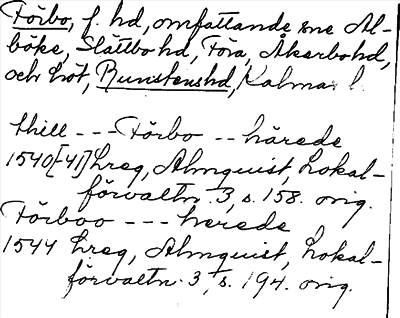 Förbo, f. hd, omfattande sne Al-
böke, Slättbo hd, Föra, Åkerbo hd,
och Löt, Runstens hd, Kalmar l.
thill --- Förbo -- härede
1540[-41] Lreg, Almquist, Lokal-
förvaltn. 3, s. 158. orig.
Förboo --- herede
1544 Lreg, Almquist, Lokal-
förvaltn. 3, s. 194. orig.